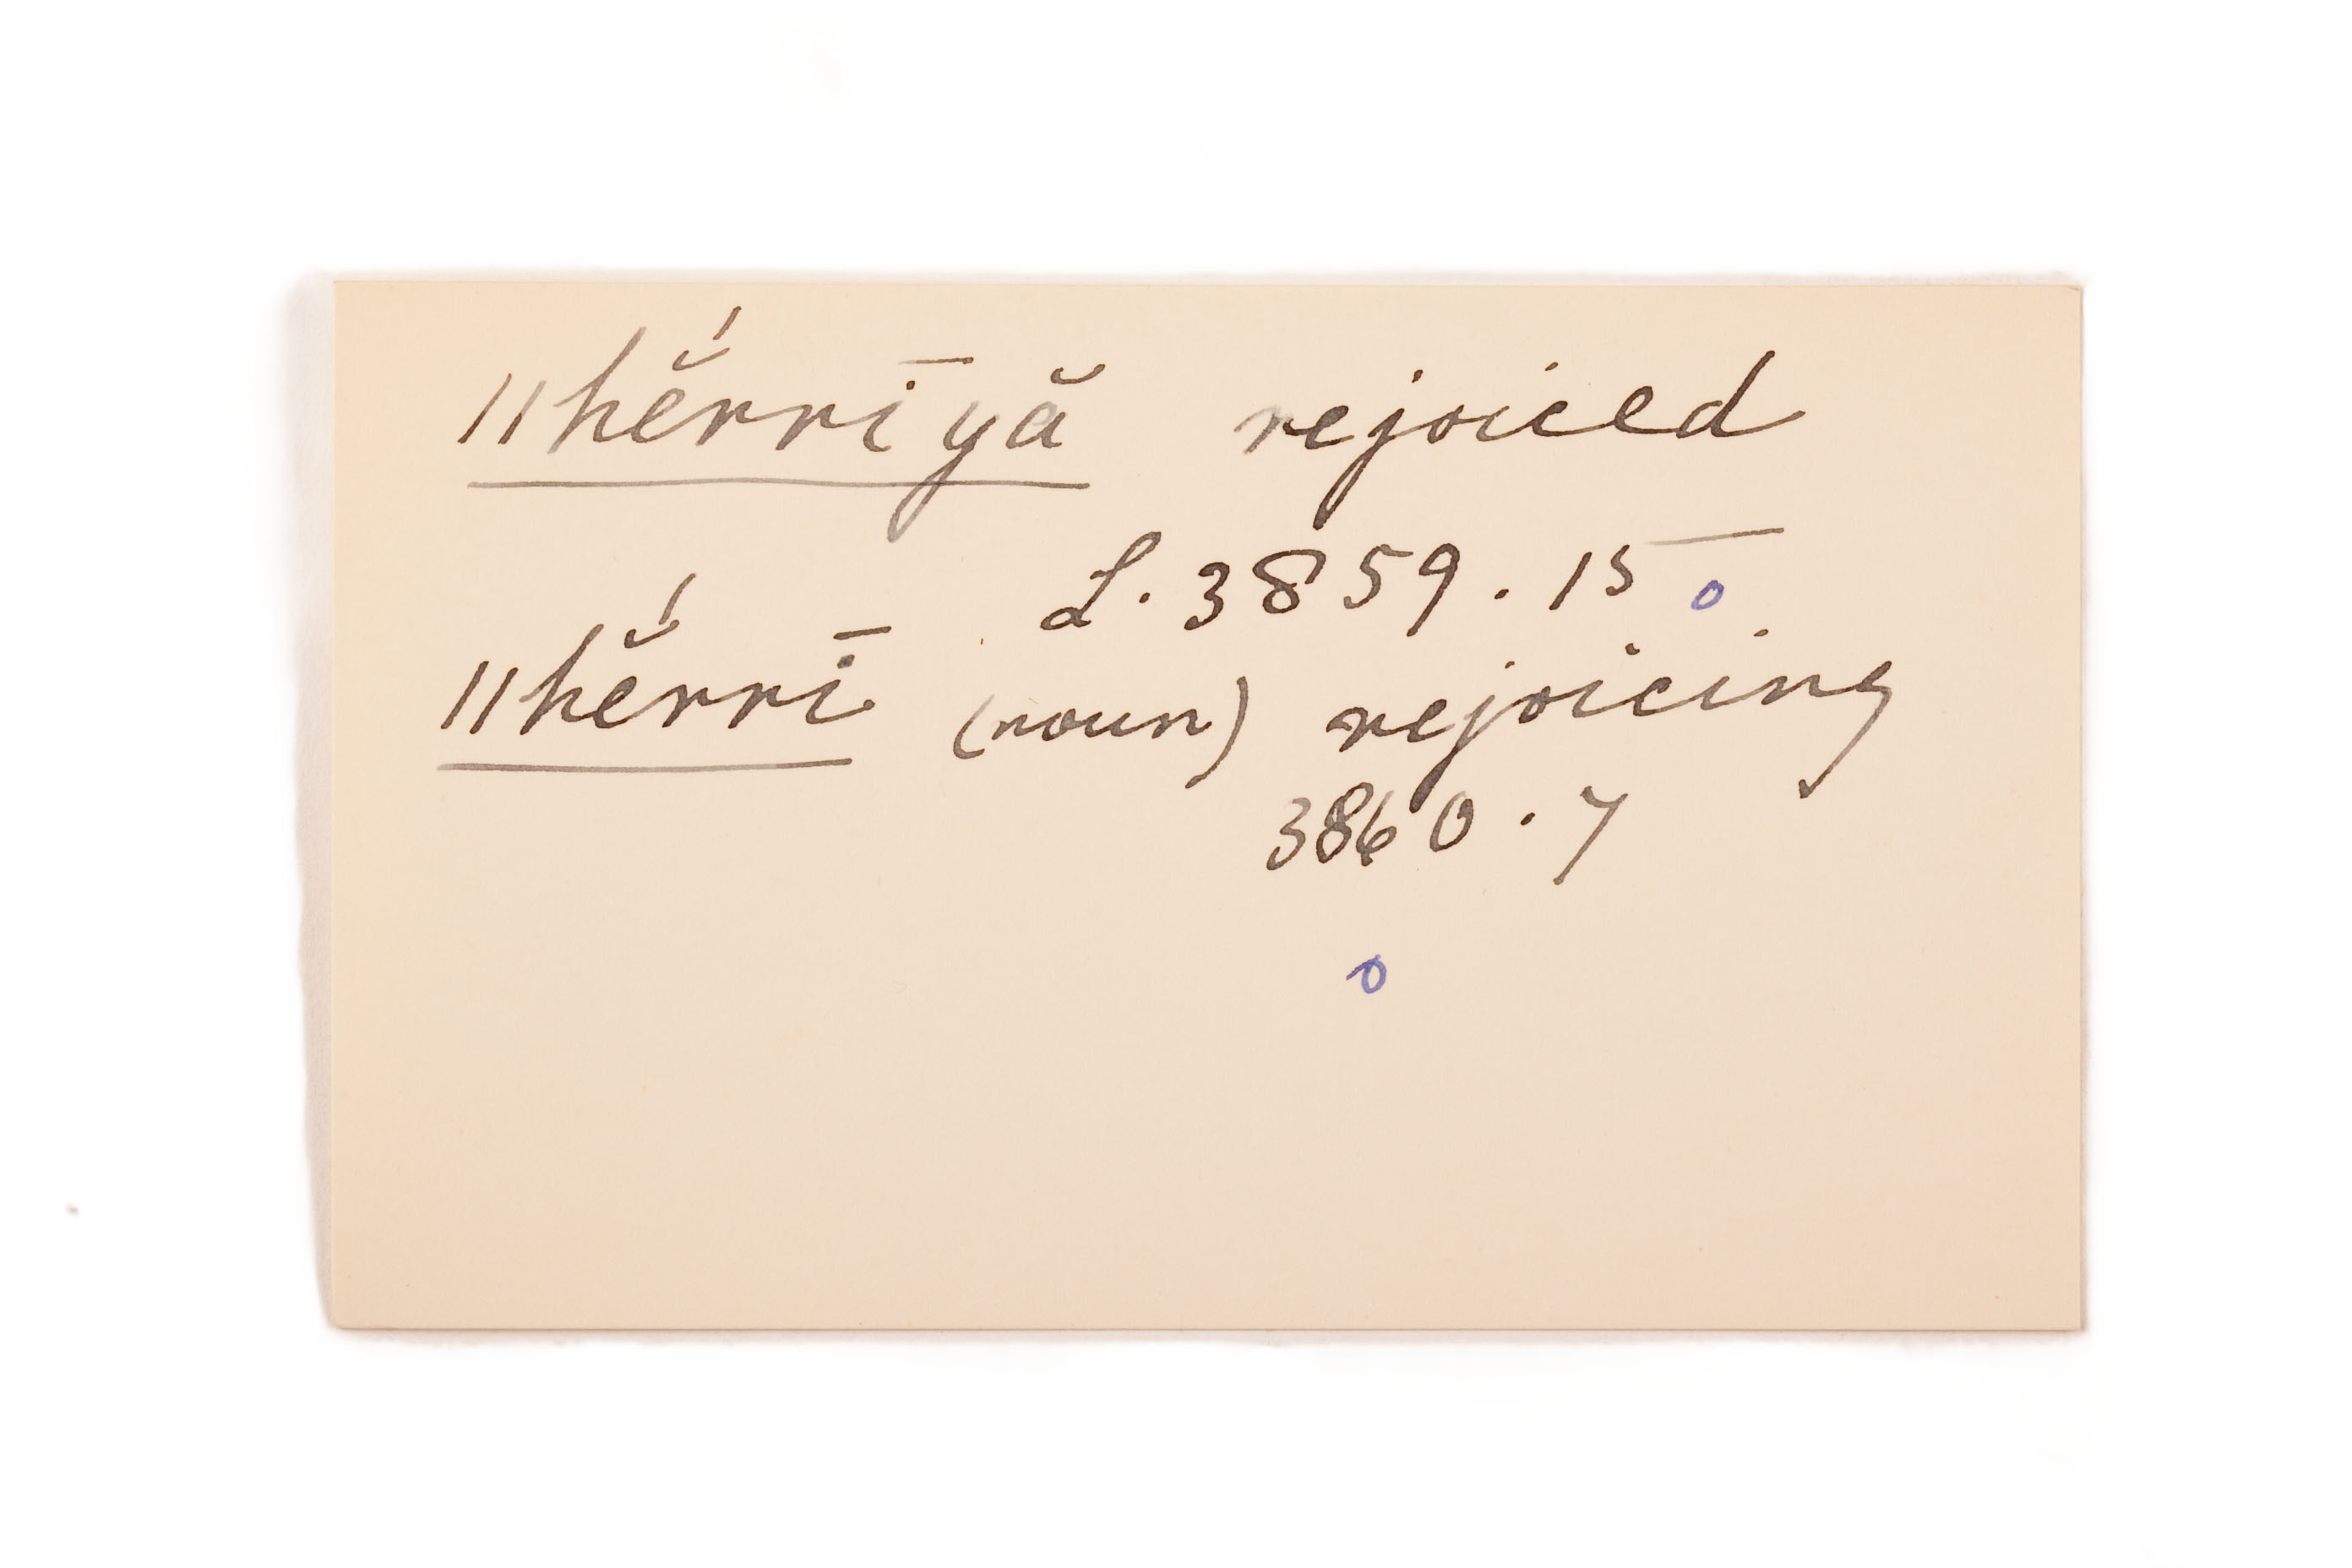 ǁhĕ́rrīyă rejoiced
L. 3859.15 o
ǁhĕ́rrī (noun) rejoicing
3860.7
o